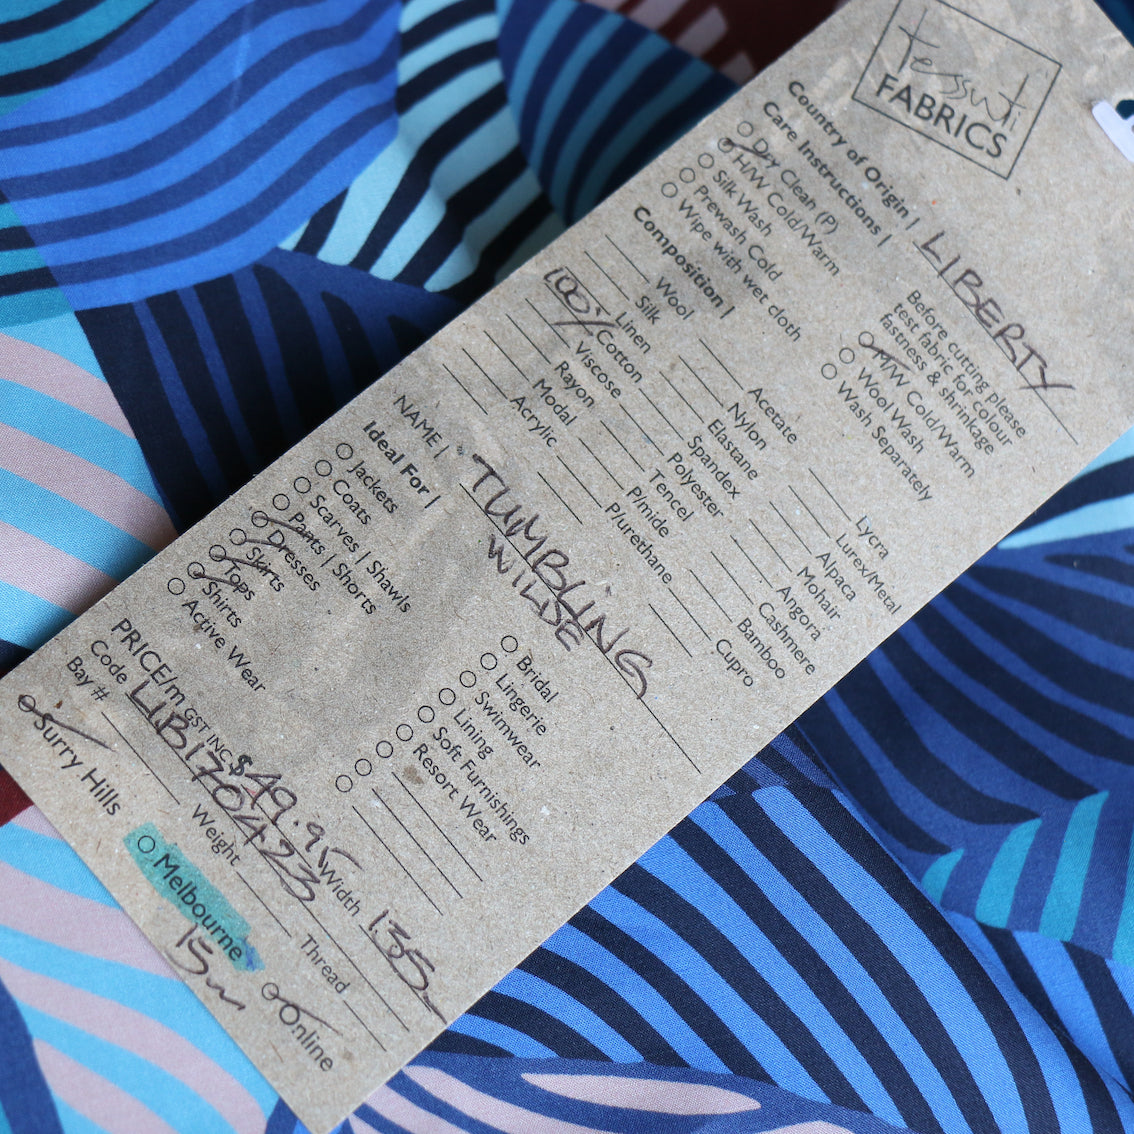 tessuti
FABRICS
Country of Origin | LIBERTY
Care Instructions |
Dry Clean (P)
H/W Cold/Warm
Silk Wash
Prewash Cold
Wipe with wet cloth
Before cutting please
test fabric for colour
fastness & shrinkage
M/W Cold/Warm
Wool Wash
Wash Separately
Composition |
Wool
Silk
Linen
100% Cotton
Viscose
Rayon
Modal
Acrylic
Acetate
Nylon
Elastane
Spandex
Polyester
Tencel
P/mide
P/urethane
Lycra
Lurex/Metal
Alpaca
Mohair
Angora
Cashmere
Bamboo
Cupro
NAME | TUMBLING
WILDE
Ideal For |
Jackets
Coats
Scarves | Shawls
Pants | Shorts
Dresses
Skirts
Tops
Shirts
Active Wear
Bridal
Lingerie
Swimwear
Lining
Soft Furnishings
Resort Wear
PRICE/m GST INC $49.95
Code LIB170423
Width 135
Bay #
Weight
Thread
Surry Hills
Melbourne
Online
15m